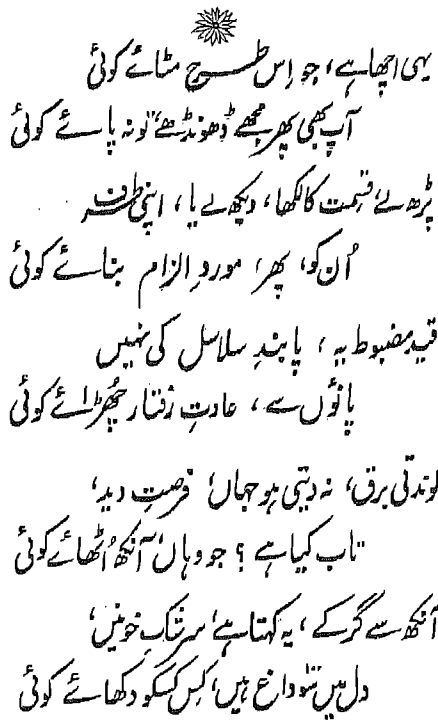 یہی اچھا ہے، جو اِس طرح مٹائے کوئی
آپ بھی پھر مجھے ڈھونڈھے، تو نہ پائے کوئی
پڑھ لے قسمت کا لکھا، دیکھ لے یا، اپنی طرف
اُن کو، پھر، موردِ الزام بنائے کوئی
قیدِ مضبوط یہ، پابندِ سلاسل کی نہیں
پانؤں سے، عادتِ رفتار چُھڑائے کوئی
کوندتی برق، نہ دیتی ہو جہاں، فرصتِ دید،
تاب کیا ہے؟ جو وہاں، آنکھ اُٹھائے کوئی
آنکھ سے گر کے، یہ کہتا ہے، سرشکِ خونیں،
دل میں سَو داغ ہیں، کِس کِسکو دکھائے کوئی